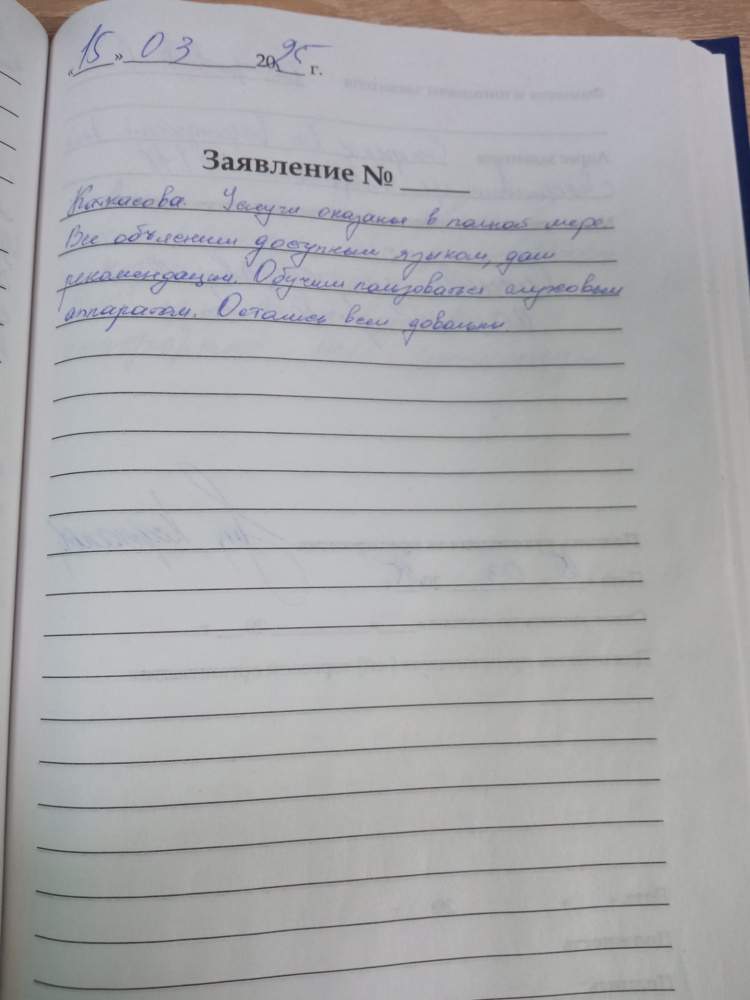 «15» 03 2025 г.
Заявление № ____
Услуги оказаны в полной мере.
Все объяснили доступным языком, дали
рекомендации. Обучили пользоваться слуховым
аппаратом. Остались всем довольны